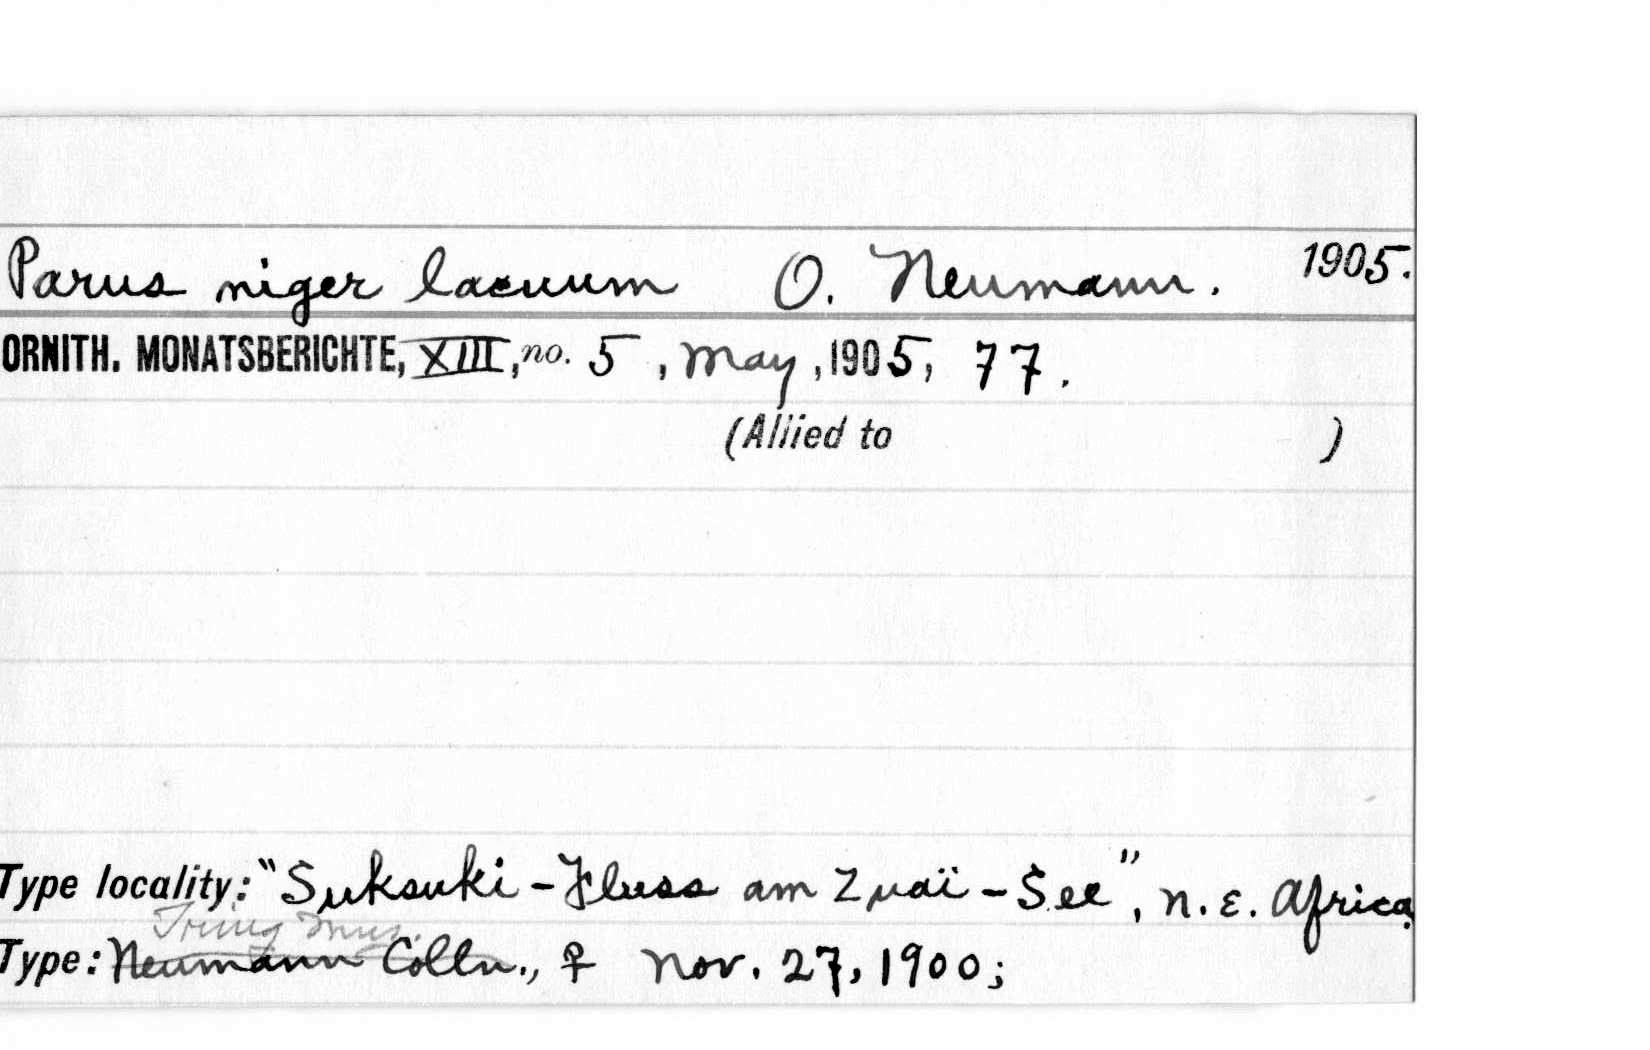 Parus niger lacuum O. Neumann. 1905.
ORNITH. MONATSBERICHTE, XIII, no. 5, May, 1905, 77.
(Allied to )
Type locality: "Suksuki-Fluss am Zuaï-See", N.E. Africa.
Tring Mus.
Type: Neumann Colln., ♀ Nov. 27, 1900;